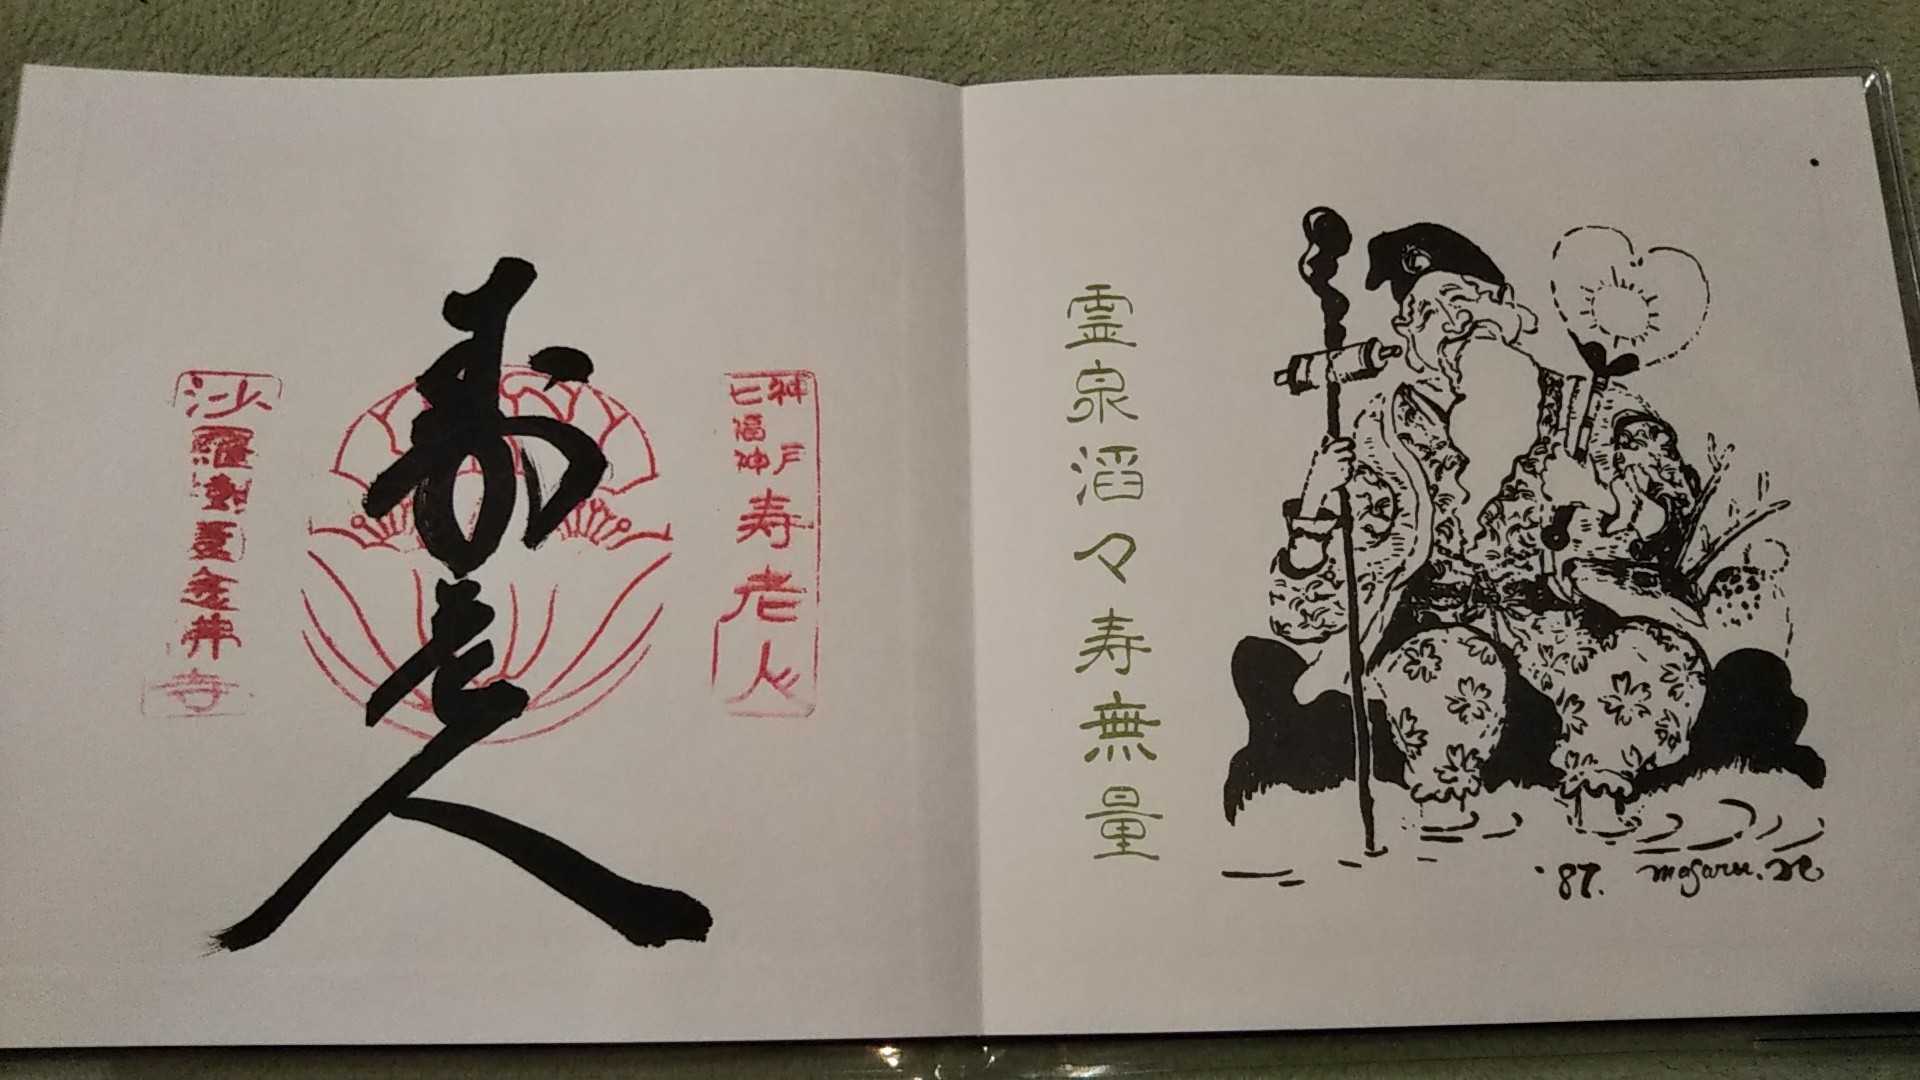 霊泉滔々寿無量
'87. masaru.
神戸
七福神
寿老人
寿老人
沙羅樹夏念佛寺